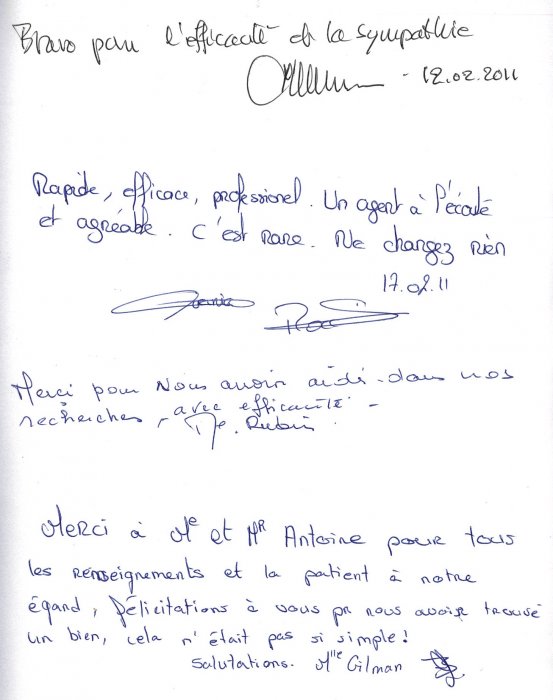 Bravo pour l'efficacité et la sympathie
- 12.02.2011
Rapide, efficace, professionel. Un agent à l'écouté
et agréable. C'est rare. Ne changez rien
17.02.11
Merci pour nous avoir aidé dans nos
recherches, avec efficacité -
Me. Rubin
Merci à Me et MR Antoine pour tous
les renseignements et la patient à notre
égard, félicitations à vous pr nous avoir trouvé
un bien, cela n'était pas si simple!
Salutations. Mlle Gilman